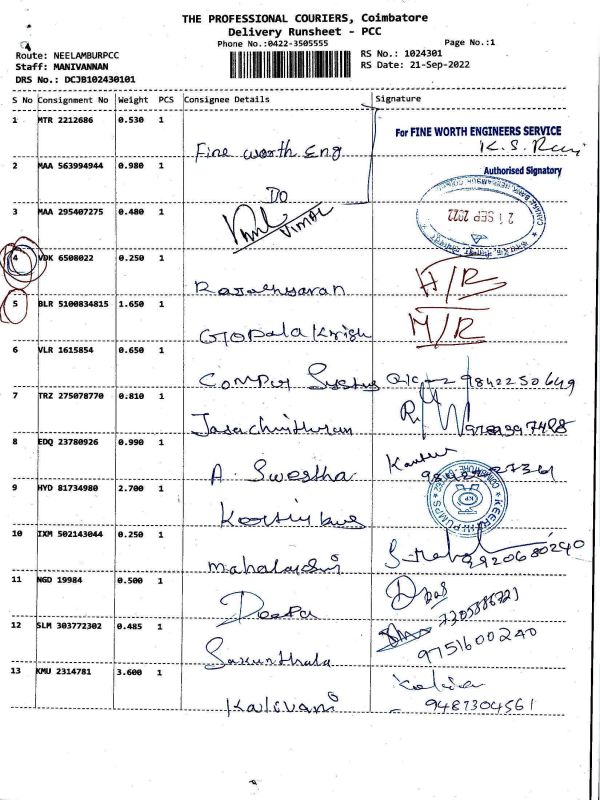 THE PROFESSIONAL COURIERS, Coimbatore
Delivery Runsheet - PCC
Phone No.:0422-3505555
Page No.:1
Route: NEELAMBURPCC
RS No.: 1024301
Staff: MANIVANNAN
RS Date: 21-Sep-2022
DRS No.: DCJB102430101
S No Consignment No Weight PCS Consignee Details Signature
1 MTR 2212686 0.530 1
Fine worth Eng
For FINE WORTH ENGINEERS SERVICE
Authorised Signatory
2 MAA 563994944 0.980 1
DO
3 MAA 295407275 0.480 1
VIMAL
21 SEP 2022
4 VDK 6508022 0.250 1
H/R
5 BLR 5100834815 1.650 1
Gopala Krish
M/R
6 VLR 1615854 0.650 1
9842250649
7 TRZ 275078770 0.810 1
8 EDQ 23780926 0.990 1
A. Swestha
9 HYD 81734980 2.700 1
KEERTHI PUMPS
10 IXM 502143044 0.250 1
9920680240
11 NGD 19984 0.500 1
Deepa
12 SLM 303772302 0.485 1
Sakunthala
9751600240
13 KMU 2314781 3.600 1
Kalevani
9487304561